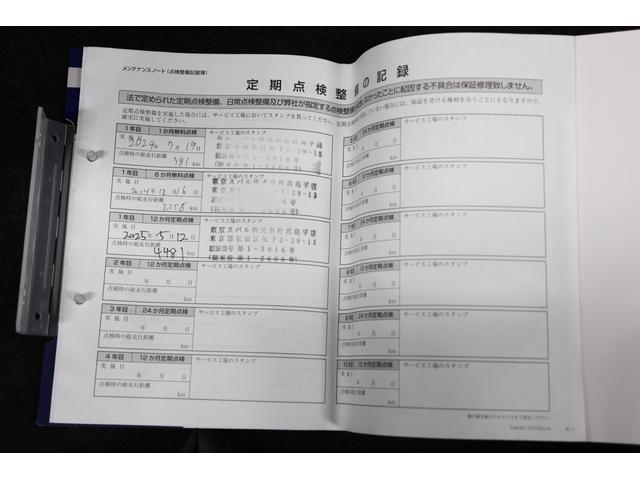 メンテナンスノート(点検整備記録簿)
定期点検整備の記録
法で定められた定期点検整備、日常点検整備及び弊社が指定する点検整備
なかったことに起因する不具合は保証修理致しません。
定期点検整備を実施した場合には、サービス工場においてスタンプを買ってください。
確実に実施してください。
ていない場合には、保証を受ける権利を失うことにもなりますので、
1年目 1か月無料点検 サービス工場のスタンプ
実施日 2024年7月19日
点検時の総走行距離
381 km
1年目 6か月無料点検 サービス工場のスタンプ
実施日
2024年12月16日
点検時の総走行距離
2258 km
東京スバル株式会社高島平店
東京都板橋区坂下2-29-13
1年目 12か月定期点検 サービス工場のスタンプ
実施日
2025年5月12日
点検時の総走行距離
4481 km
東京スバル株式会社高島平店
東京都板橋区坂下2-29-13
認証番号 第1-3916号
第1-2606号
2年目 12か月定期点検 サービス工場のスタンプ
実施日
年 月 日
点検時の総走行距離
km
3年目 24か月定期点検 サービス工場のスタンプ
実施日
年 月 日
点検時の総走行距離
km
4年目 12か月定期点検 サービス工場のスタンプ
実施日
年 月 日
点検時の総走行距離
km
24か月定期点検 サービス工場のスタンプ
12か月定期点検 サービス工場のスタンプ
24か月定期点検 サービス工場のスタンプ
12か月定期点検 サービス工場のスタンプ
24か月定期点検 サービス工場のスタンプ
12か月定期点検 サービス工場のスタンプ